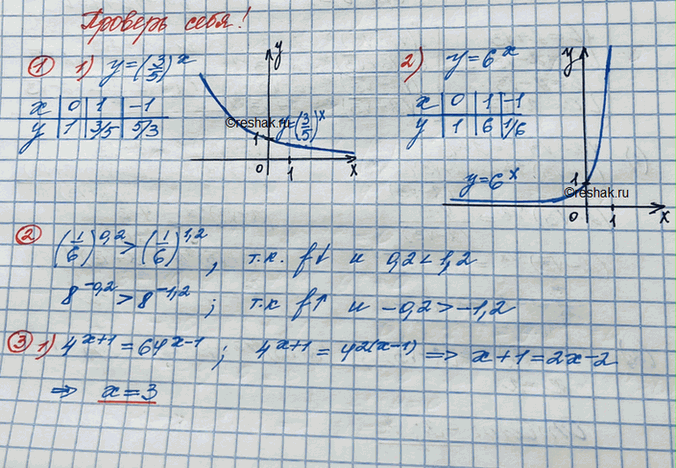 Проверь себя!
① 1) y=(3/5)^x
x 0 1 -1
y 1 3/5 5/3
y
©reshak.ru
y=(3/5)^x
1
0 1 x
2) y=6^x
x 0 1 -1
y 1 6 1/6
y
y=6^x
1
©reshak.ru
0 1 x
② (1/6)^0,2 > (1/6)^1,2 ; т.к. f↓ и 0,2<1,2
8^-0,2 > 8^-1,2 ; т.к f↑ и -0,2>-1,2
③ 1) 4^x+1 = 64^x-1 ; 4^x+1 = 4^2(x-1) => x+1=2x-2
=> x=3